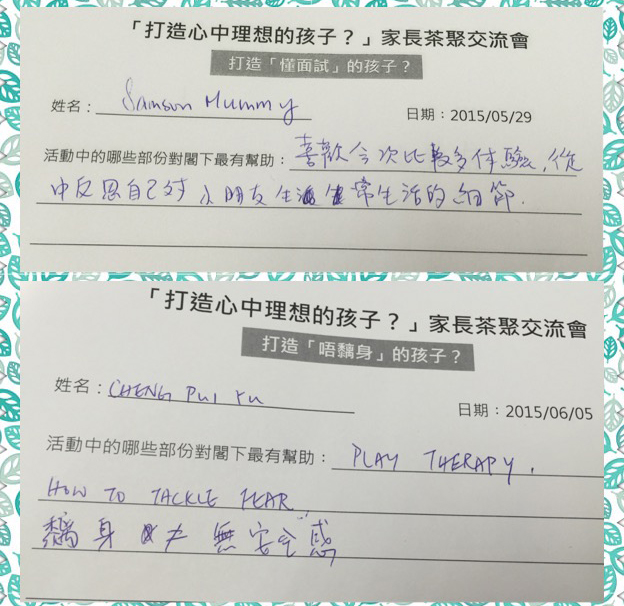 「打造心中理想的孩子？」家長茶聚交流會
打造「懂面試」的孩子？
姓名： Samson Mummy 日期：2015/05/29
活動中的哪些部份對閣下最有幫助： 喜歡今次比較多体驗，從
中反思自己对小朋友生常生活的細節.
「打造心中理想的孩子？」家長茶聚交流會
打造「唔黐身」的孩子？
姓名： CHENG PUI YU 日期：2015/06/05
活動中的哪些部份對閣下最有幫助： PLAY THERAPY,
HOW TO TACKLE FEAR
黐身 ≠ 無安全感